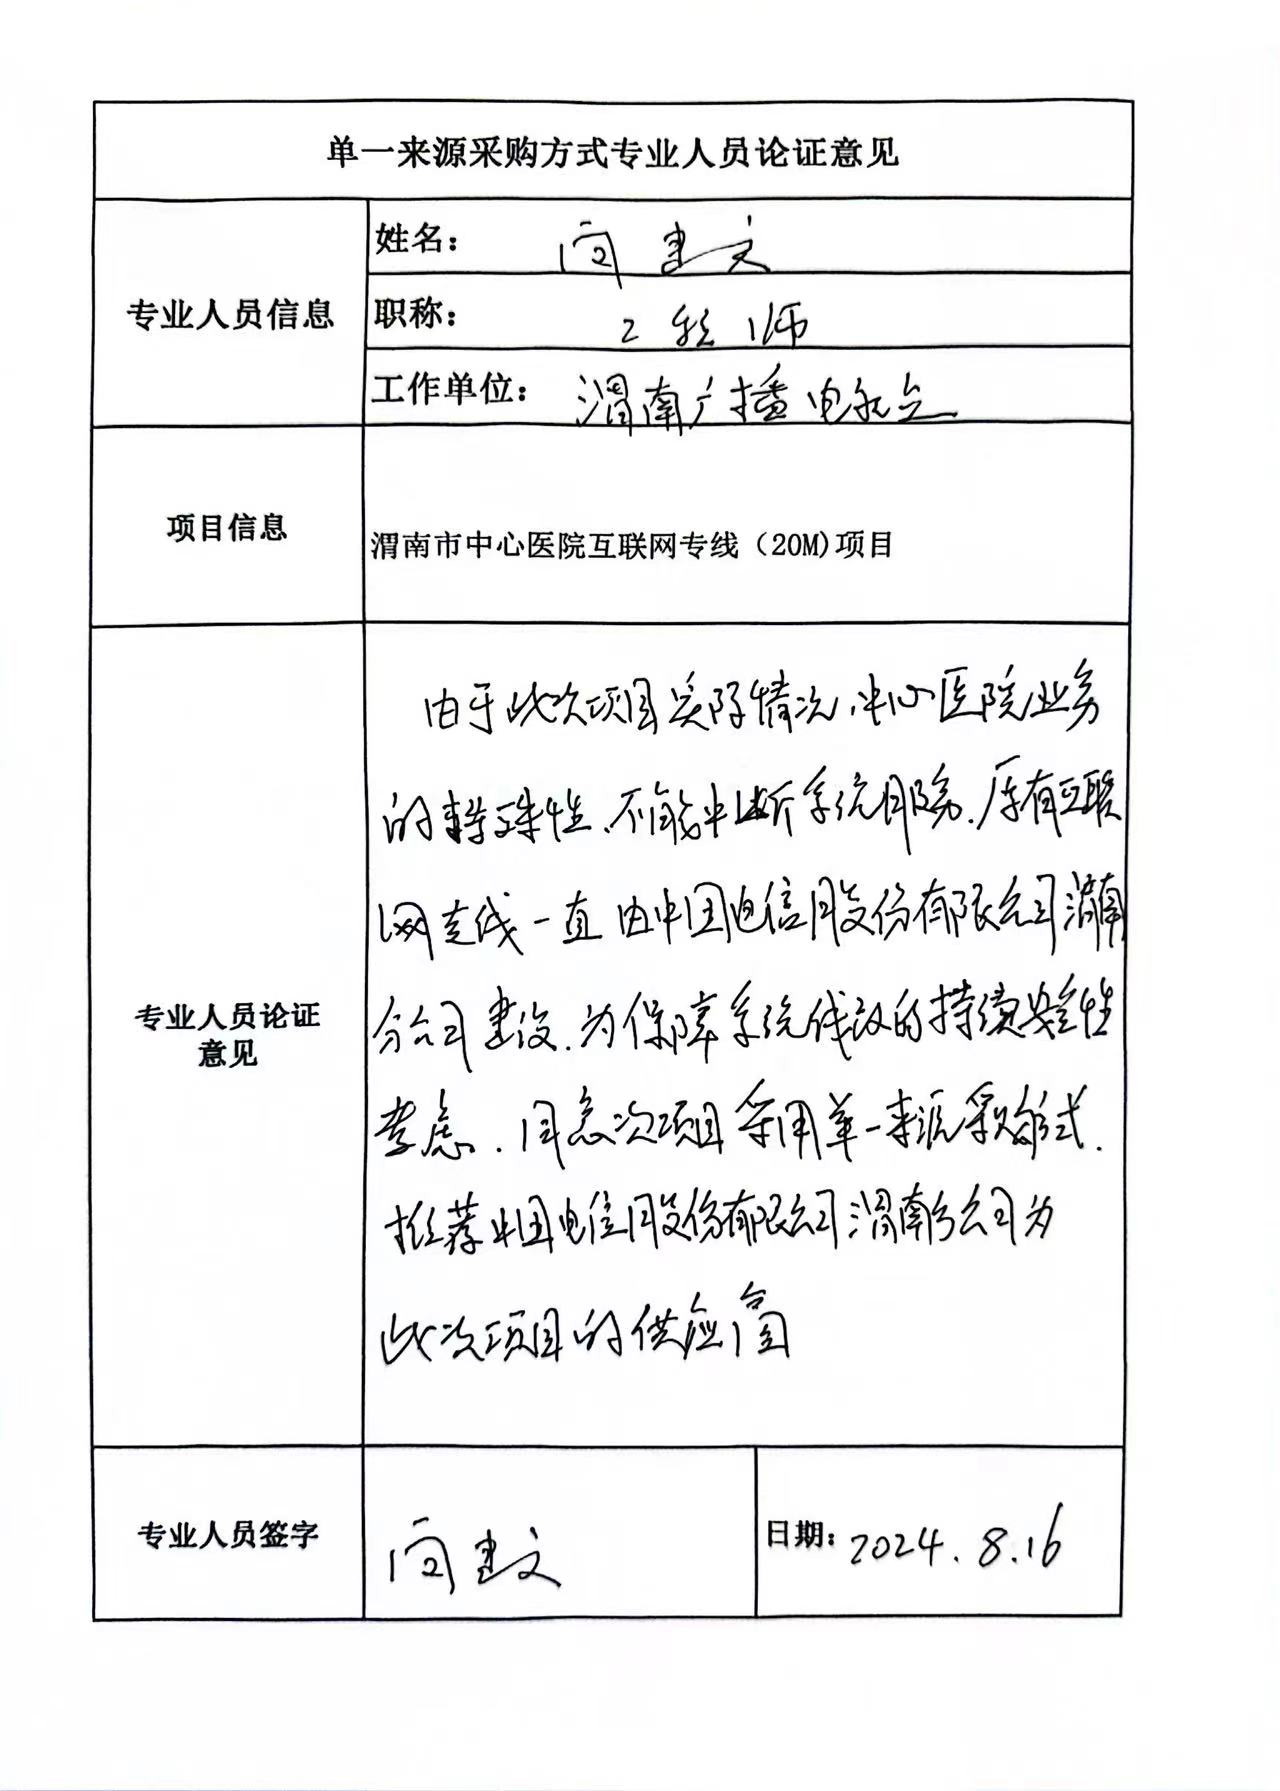 单一来源采购方式专业人员论证意见
专业人员信息
姓名：建文
职称：工程师
工作单位：渭南广播电视台
项目信息
渭南市中心医院互联网专线（20M)项目
专业人员论证
意见
由于此次项目实际情况，中心医院业务
的特殊性、不能中断系统服务．原有互联
网专线一直由中国电信股份有限公司渭南
分公司建设．为保障系统线路的持续稳定性
考虑．同意次项目采用单一来源采购形式．
推荐中国电信股份有限公司渭南分公司为
此次项目的供应商
专业人员签字
建文
日期：2024.8.16